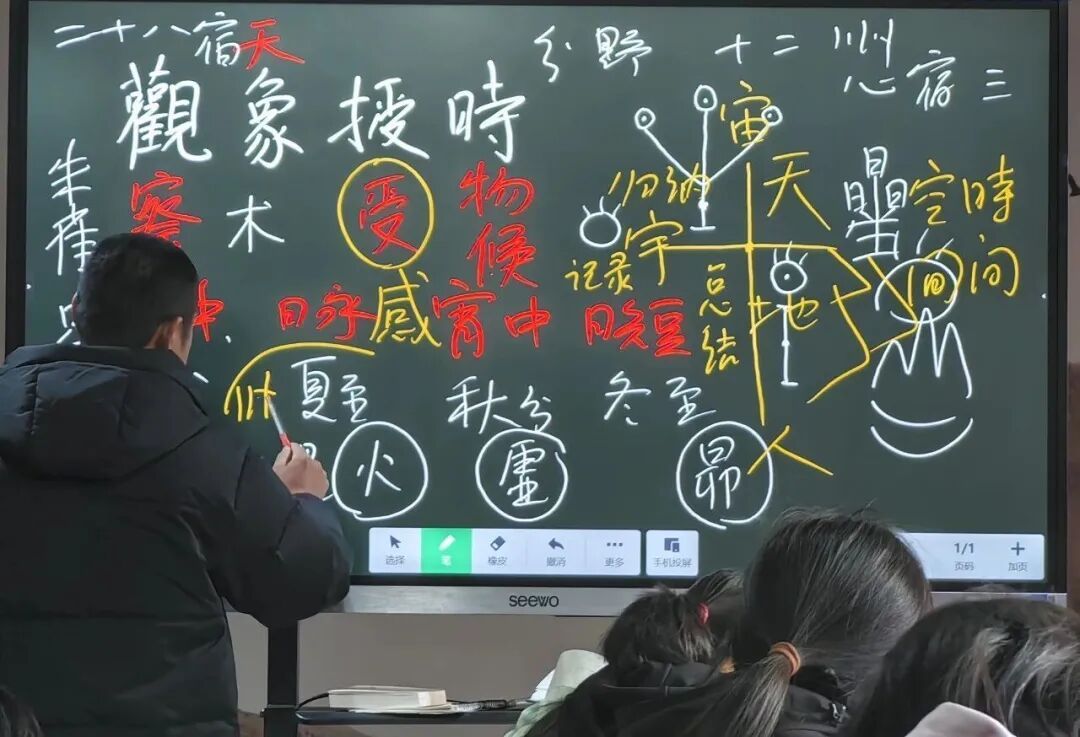 二十八宿天
分野 十二州
心宿三
觀象授時
朱
察术 受 物候
宙
天
归纳
記录宇
星 空時
间间
总结
地
中 日永感宵中 日短
夏至 秋分 冬至
火 虚 昴
人
选择 笔 橡皮 撤消 更多 手机投屏
1/1 页码 加页
seewo